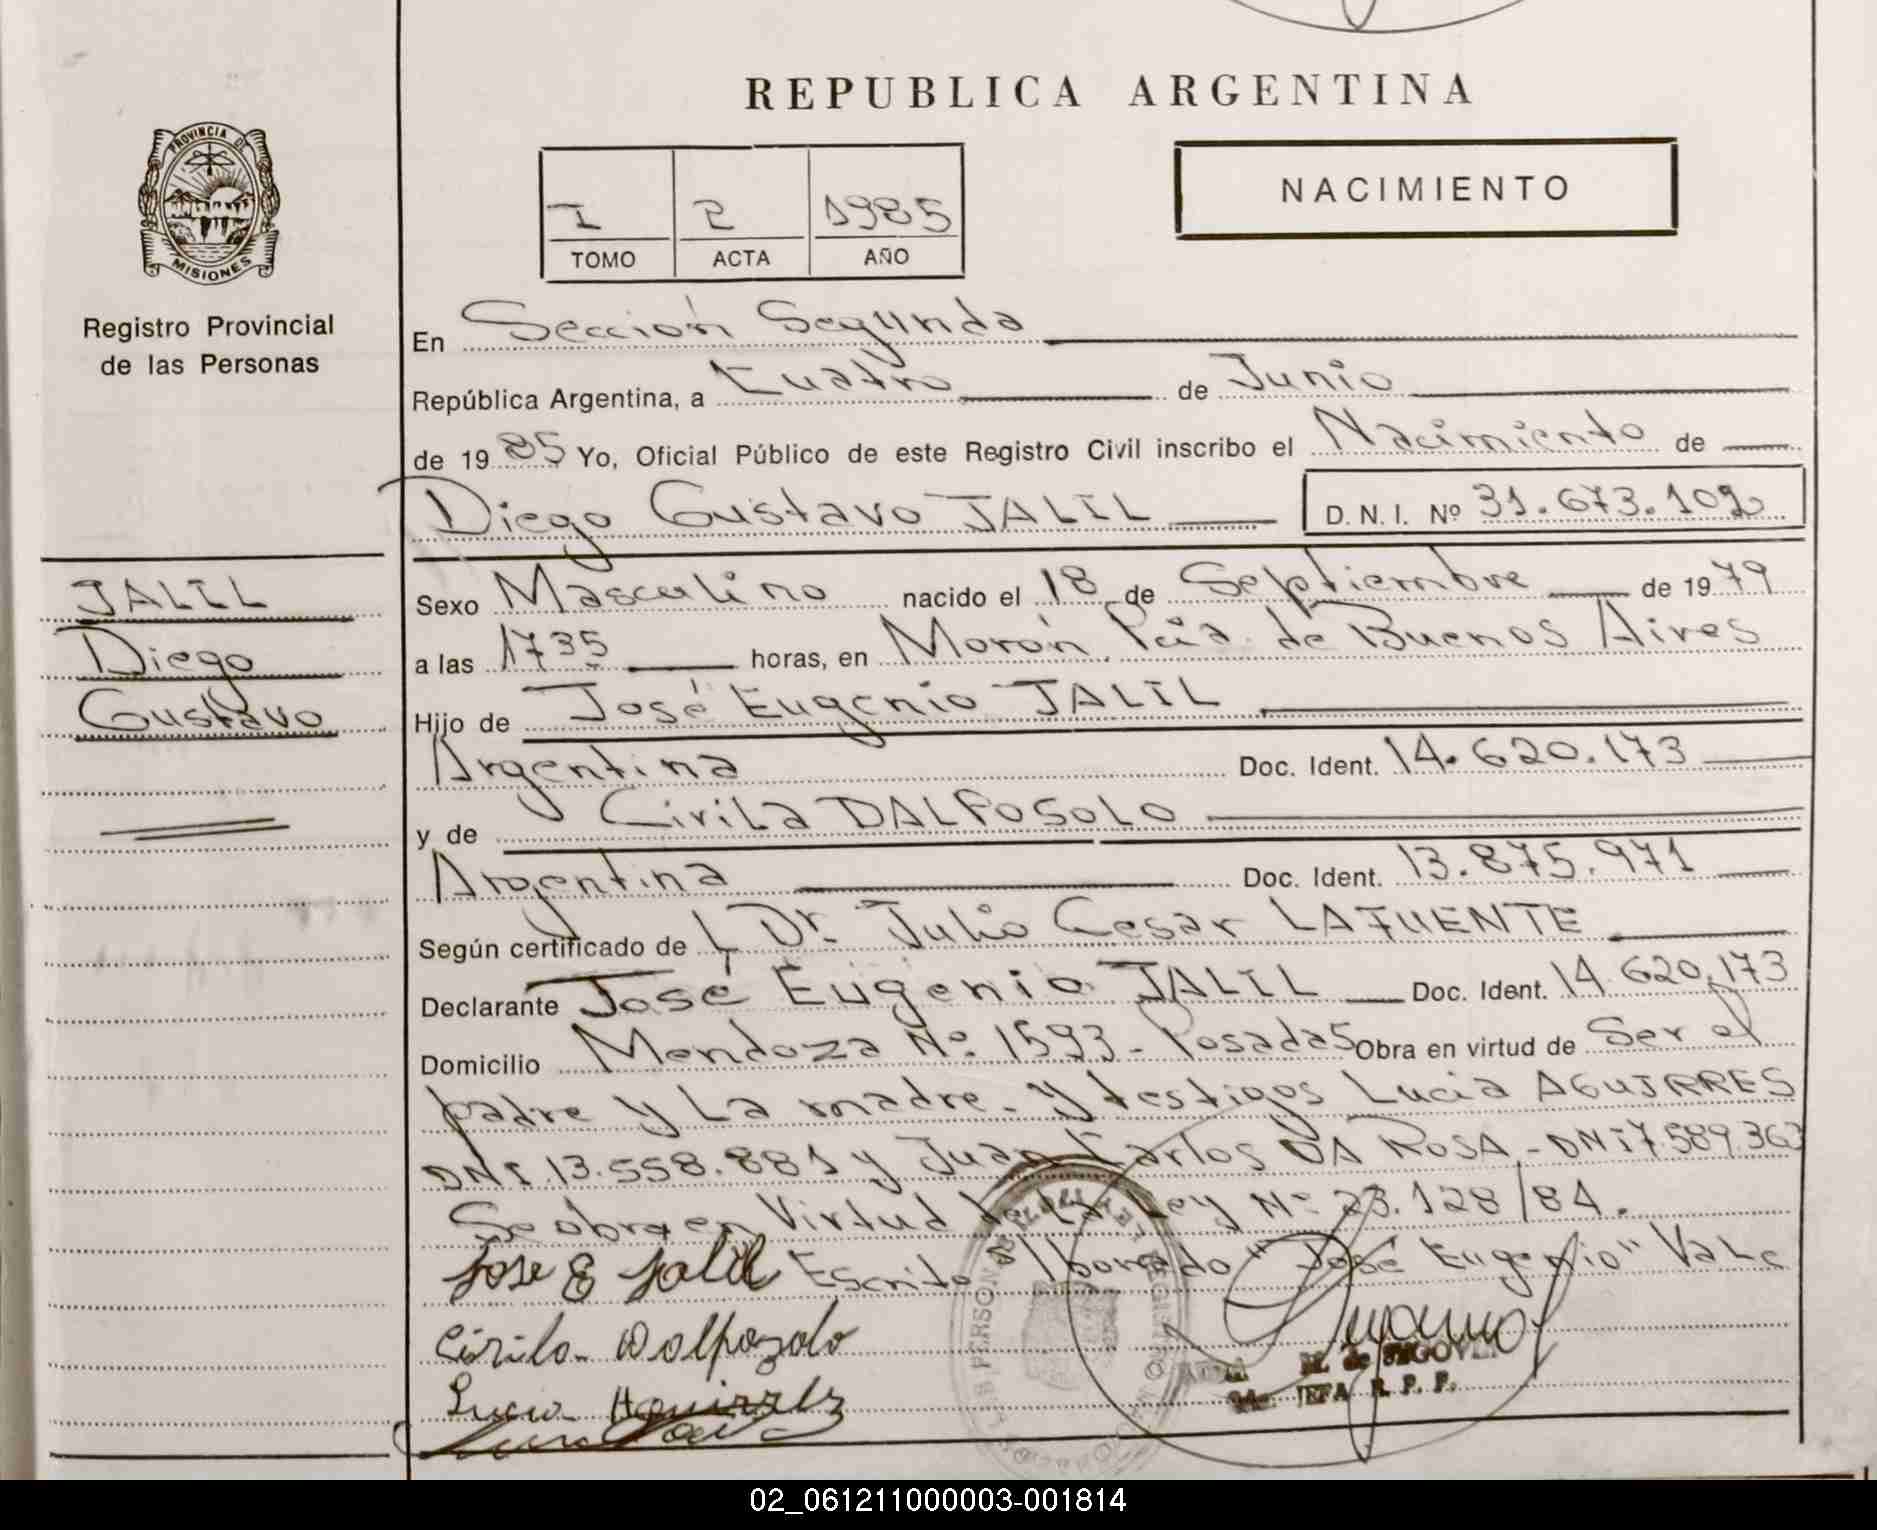 REPUBLICA ARGENTINA
PROVINCIA DE
MISIONES
Registro Provincial
de las Personas
I 2 1985
TOMO ACTA AÑO
NACIMIENTO
En Sección Segunda
República Argentina, a Cuatro de Junio
de 1985 Yo, Oficial Público de este Registro Civil inscribo el Nacimiento de
Diego Gustavo JALIL D. N. I. Nº 31.673.102
JALIL
Diego
Gustavo
Sexo Masculino nacido el 18 de Septiembre de 1979
a las 1735 horas, en Morón Pcia. de Buenos Aires
Hijo de José Eugenio JALIL
Argentina Doc. Ident. 14.620.173
y de Cirila DALPOSOLO
Argentina Doc. Ident. 13.875.971
Según certificado de Dr. Julio Cesar LAFUENTE
Declarante José Eugenio JALIL Doc. Ident. 14.620.173
Domicilio Mendoza Nº 1593 - Posadas Obra en virtud de Ser el
padre y La madre. y testigos Lucia AGUIRRES
DNI.13.558.881 y Juan Carlos DA ROSA - DNI 7.589.363
Se obra en Virtud de La Ley Nº 23.128/84.
Jose E Jalil Escrito s/borrado "José Eugenio" Vale
Cirila Dalpozolo
Lucia Aguirrez
M. de SEGOVIA
JEFA R. P. P.
02_061211000003-001814